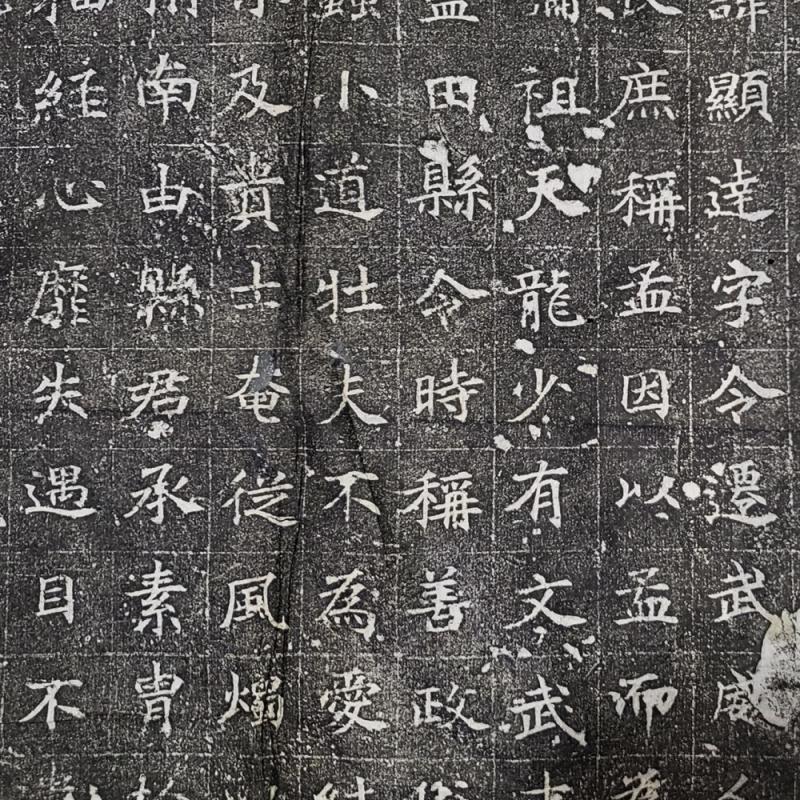 諱顯達字令遷武威人
庶稱孟因以孟而為
祖天龍少有文武
田縣令時稱善政
小道壮夫不為愛
及貴士奄從風燭
南由縣君承素胄
維心靡失遇目不